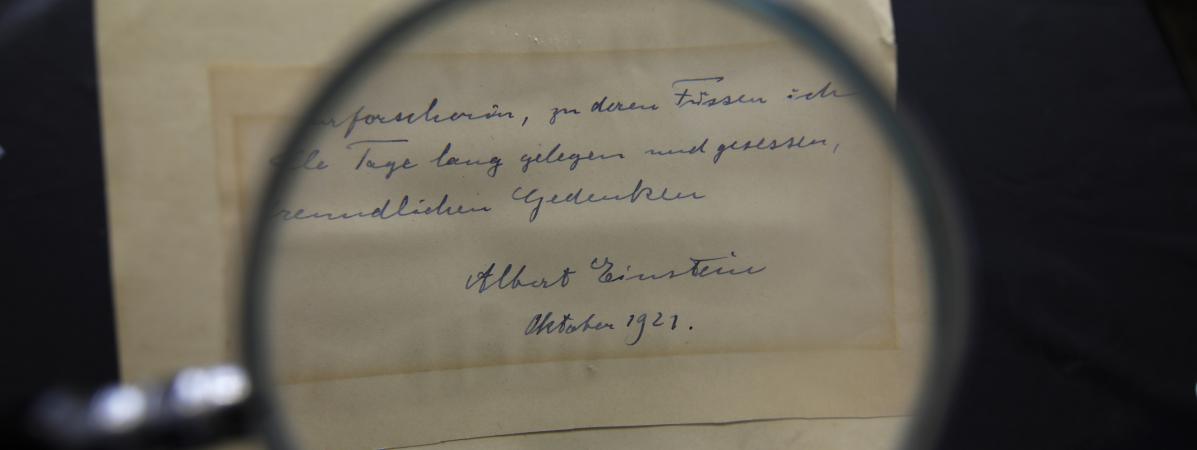 rforscherin, zu deren Füssen ich
Tage lang gelegen und gesessen,
freundlichen Gedenken
Albert Einstein
Oktober 1921.